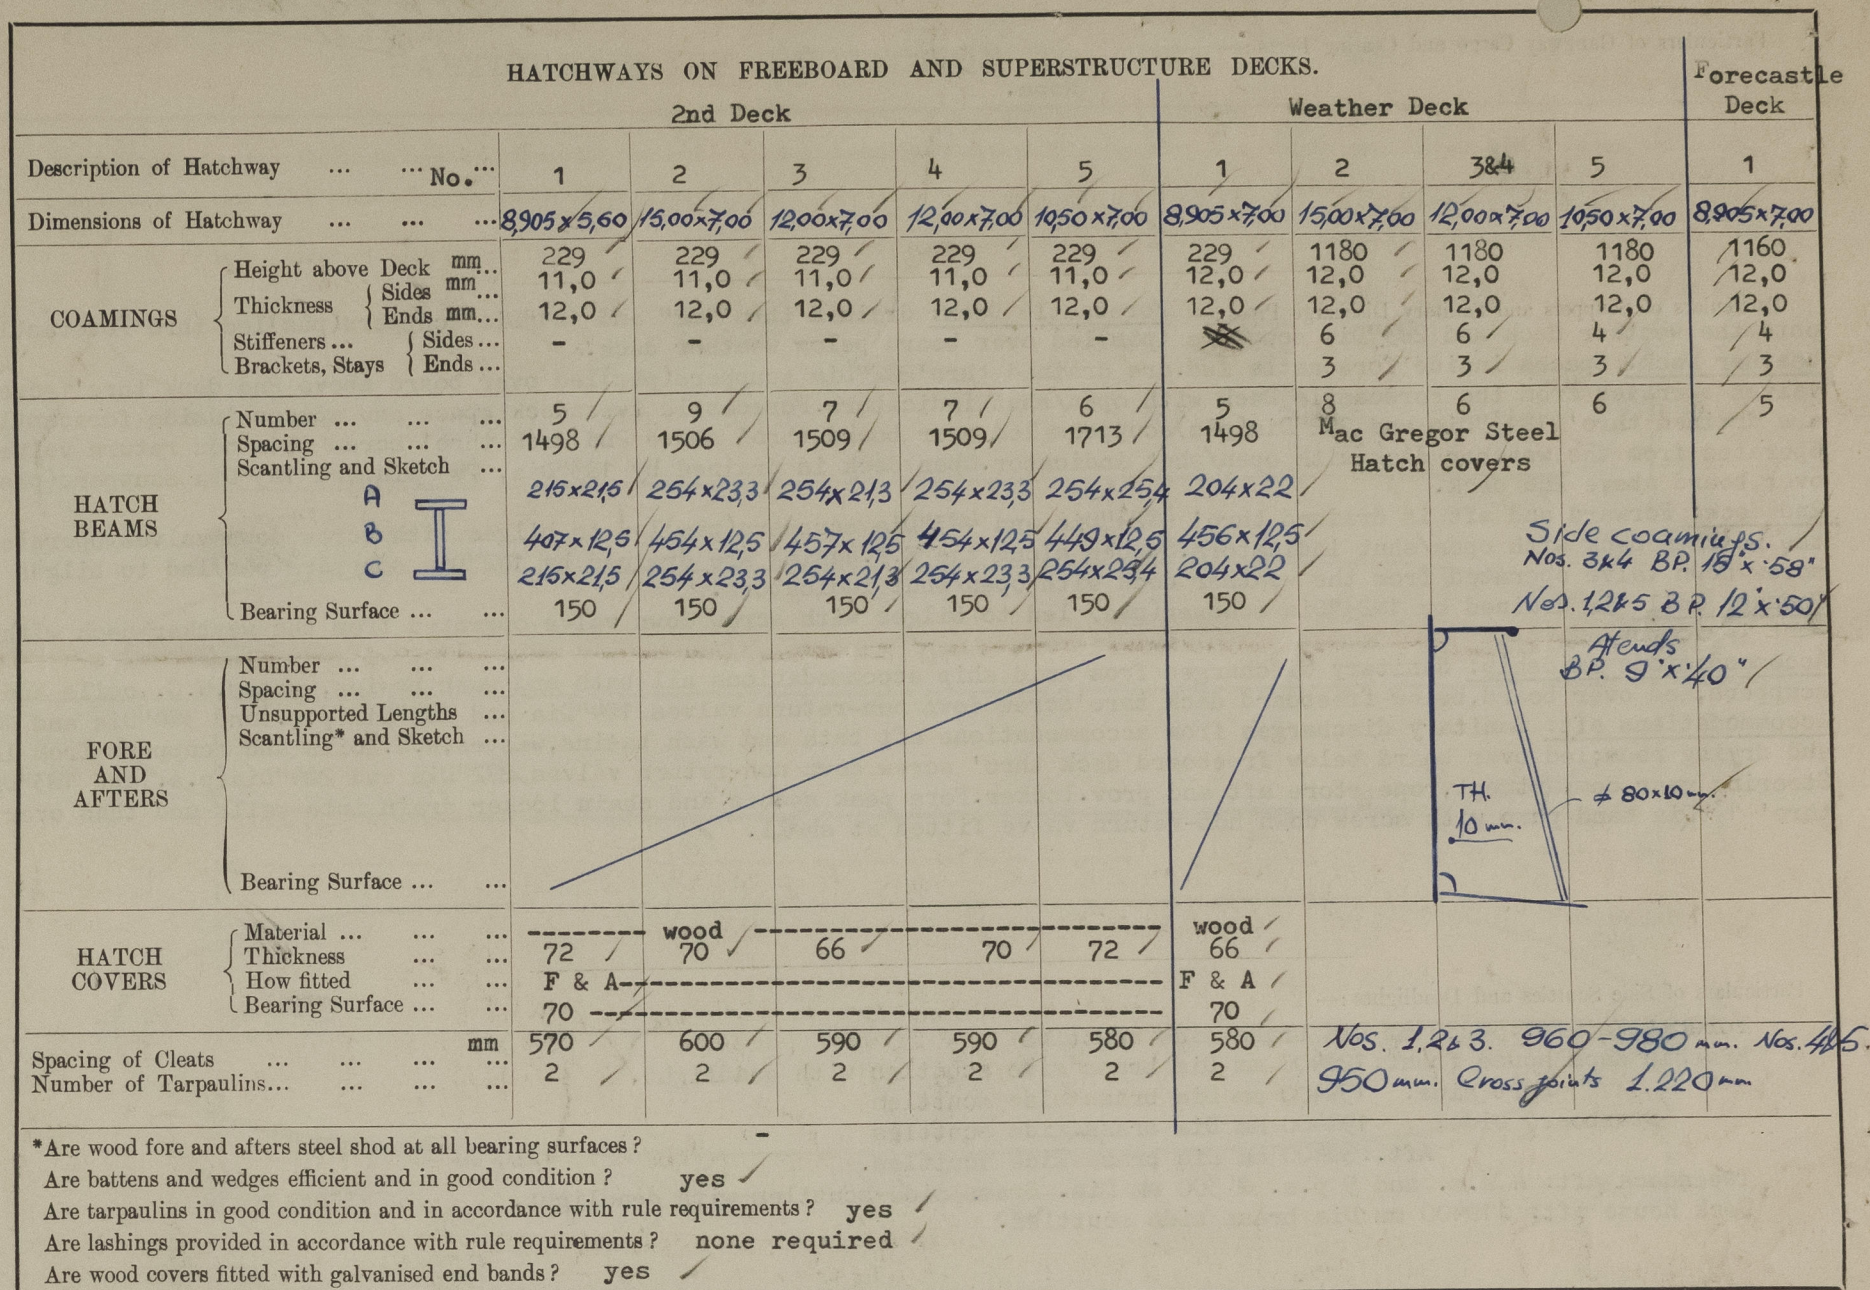 HATCHWAYS ON FREEBOARD AND SUPERSTRUCTURE DECKS.
2nd Deck Weather Deck Forecastle Deck
Description of Hatchway ... ... No. ... 1 2 3 4 5 1 2 3&4 5 1
Dimensions of Hatchway ... ... ... 8,905x5,60 15,00x7,00 12,00x7,00 12,00x7,00 10,50x7,00 8,905x7,00 15,00x7,00 12,00x7,00 10,50x7,00 8,905x7,00
COAMINGS
Height above Deck mm... 229 229 229 229 229 229 1180 1180 1180 1160
Thickness Sides mm... 11,0 11,0 11,0 11,0 11,0 12,0 12,0 12,0 12,0 12,0
Ends mm... 12,0 12,0 12,0 12,0 12,0 12,0 12,0 12,0 12,0 12,0
Stiffeners ... Sides ... - - - - - 6 6 4 4
Brackets, Stays Ends ... 3 3 3 3
HATCH BEAMS
Number ... ... ... 5 9 7 7 6 5 8 6 6 5
Spacing ... ... ... 1498 1506 1509 1509 1713 1498 Mac Gregor Steel
Scantling and Sketch ... Hatch covers
A 215x21,5 254x23,3 254x21,3 254x23,3 254x25,4 204x22
B 407x12,5 454x12,5 457x12,5 454x12,5 449x12,5 456x12,5
C 215x21,5 254x23,3 254x21,3 254x23,3 254x25,4 204x22
Side coamings.
Nos. 3&4 BP. 15"x.58"
Nos. 1,2&5 BP. 12"x.50"
Bearing Surface ... ... 150 150 150 150 150 150
At ends
BP. 9"x.40"
FORE AND AFTERS
Number ... ... ...
Spacing ... ... ...
Unsupported Lengths ...
Scantling* and Sketch ...
TH.
10 mm.
80x10 mm.
Bearing Surface ... ...
HATCH COVERS
Material ... ... ... wood wood
Thickness ... ... 72 70 66 70 72 66
How fitted ... ... F & A F & A
Bearing Surface ... ... 70 70
Spacing of Cleats ... ... ... mm ... 570 600 590 590 580 580 Nos. 1,2&3. 960-980 mm. Nos. 4&5.
Number of Tarpaulins... ... ... ... 2 2 2 2 2 2 950 mm. Cross joints 1.220 mm
*Are wood fore and afters steel shod at all bearing surfaces? -
Are battens and wedges efficient and in good condition? yes
Are tarpaulins in good condition and in accordance with rule requirements? yes
Are lashings provided in accordance with rule requirements? none required
Are wood covers fitted with galvanised end bands? yes